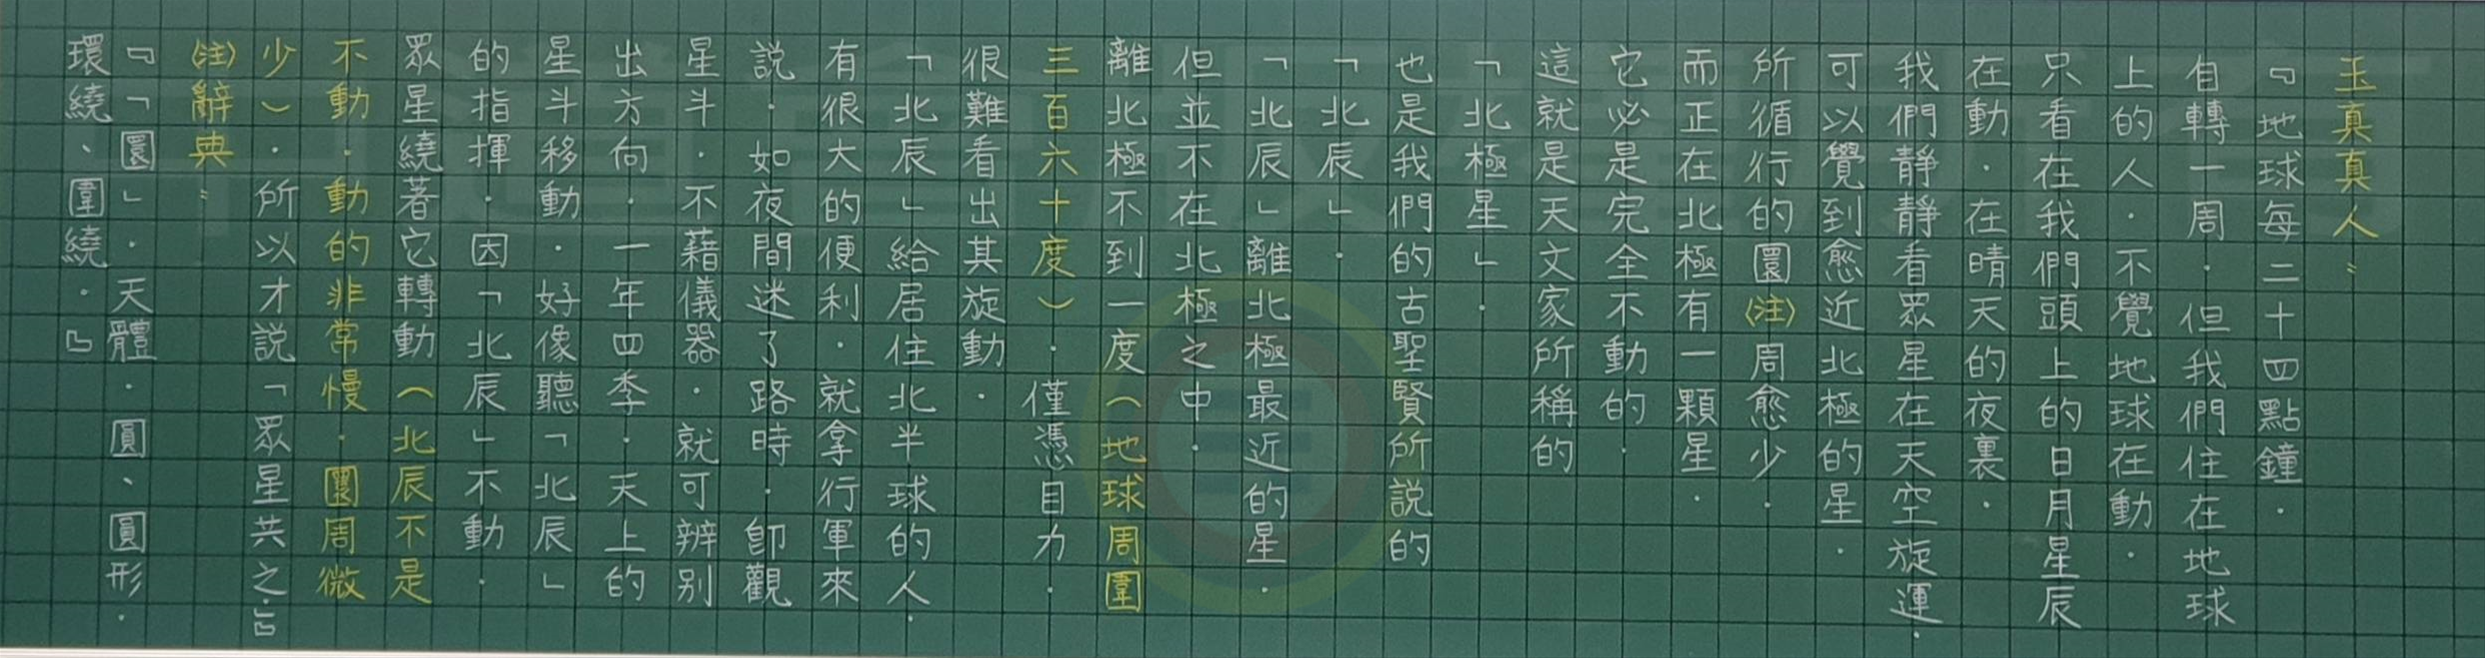 玉真真人：
『地球每二十四點鐘．
自轉一周．但我們住在地球
上的人．不覺地球在動．
只看在我們頭上的日月星辰
在動．在晴天的夜裏．
我們靜靜看眾星在天空旋運．
可以覺到愈近北極的星．
所循行的圜㊟周愈少．
而正在北極有一顆星．
它必是完全不動的．
這就是天文家所稱的
「北極星」．
也是我們的古聖賢所説的
「北辰」．
「北辰」離北極最近的星．
但並不在北極之中．
離北極不到一度（地球周圍
三百六十度）．僅憑目力．
很難看出其旋動．
「北辰」給居住北半球的人．
有很大的便利．就拿行軍來
説．如夜間迷了路時．卽觀
星斗．不藉儀器．就可辨別
出方向．一年四季．天上的
星斗移動．好像聽「北辰」
的指揮．因「北辰」不動．
眾星繞著它轉動（北辰不是
不動．動的非常慢．圜周微
少）．所以才説「眾星共之」．』
㊟辭典：
『「圜」．天體．圓、圓形．
環繞、圍繞．』